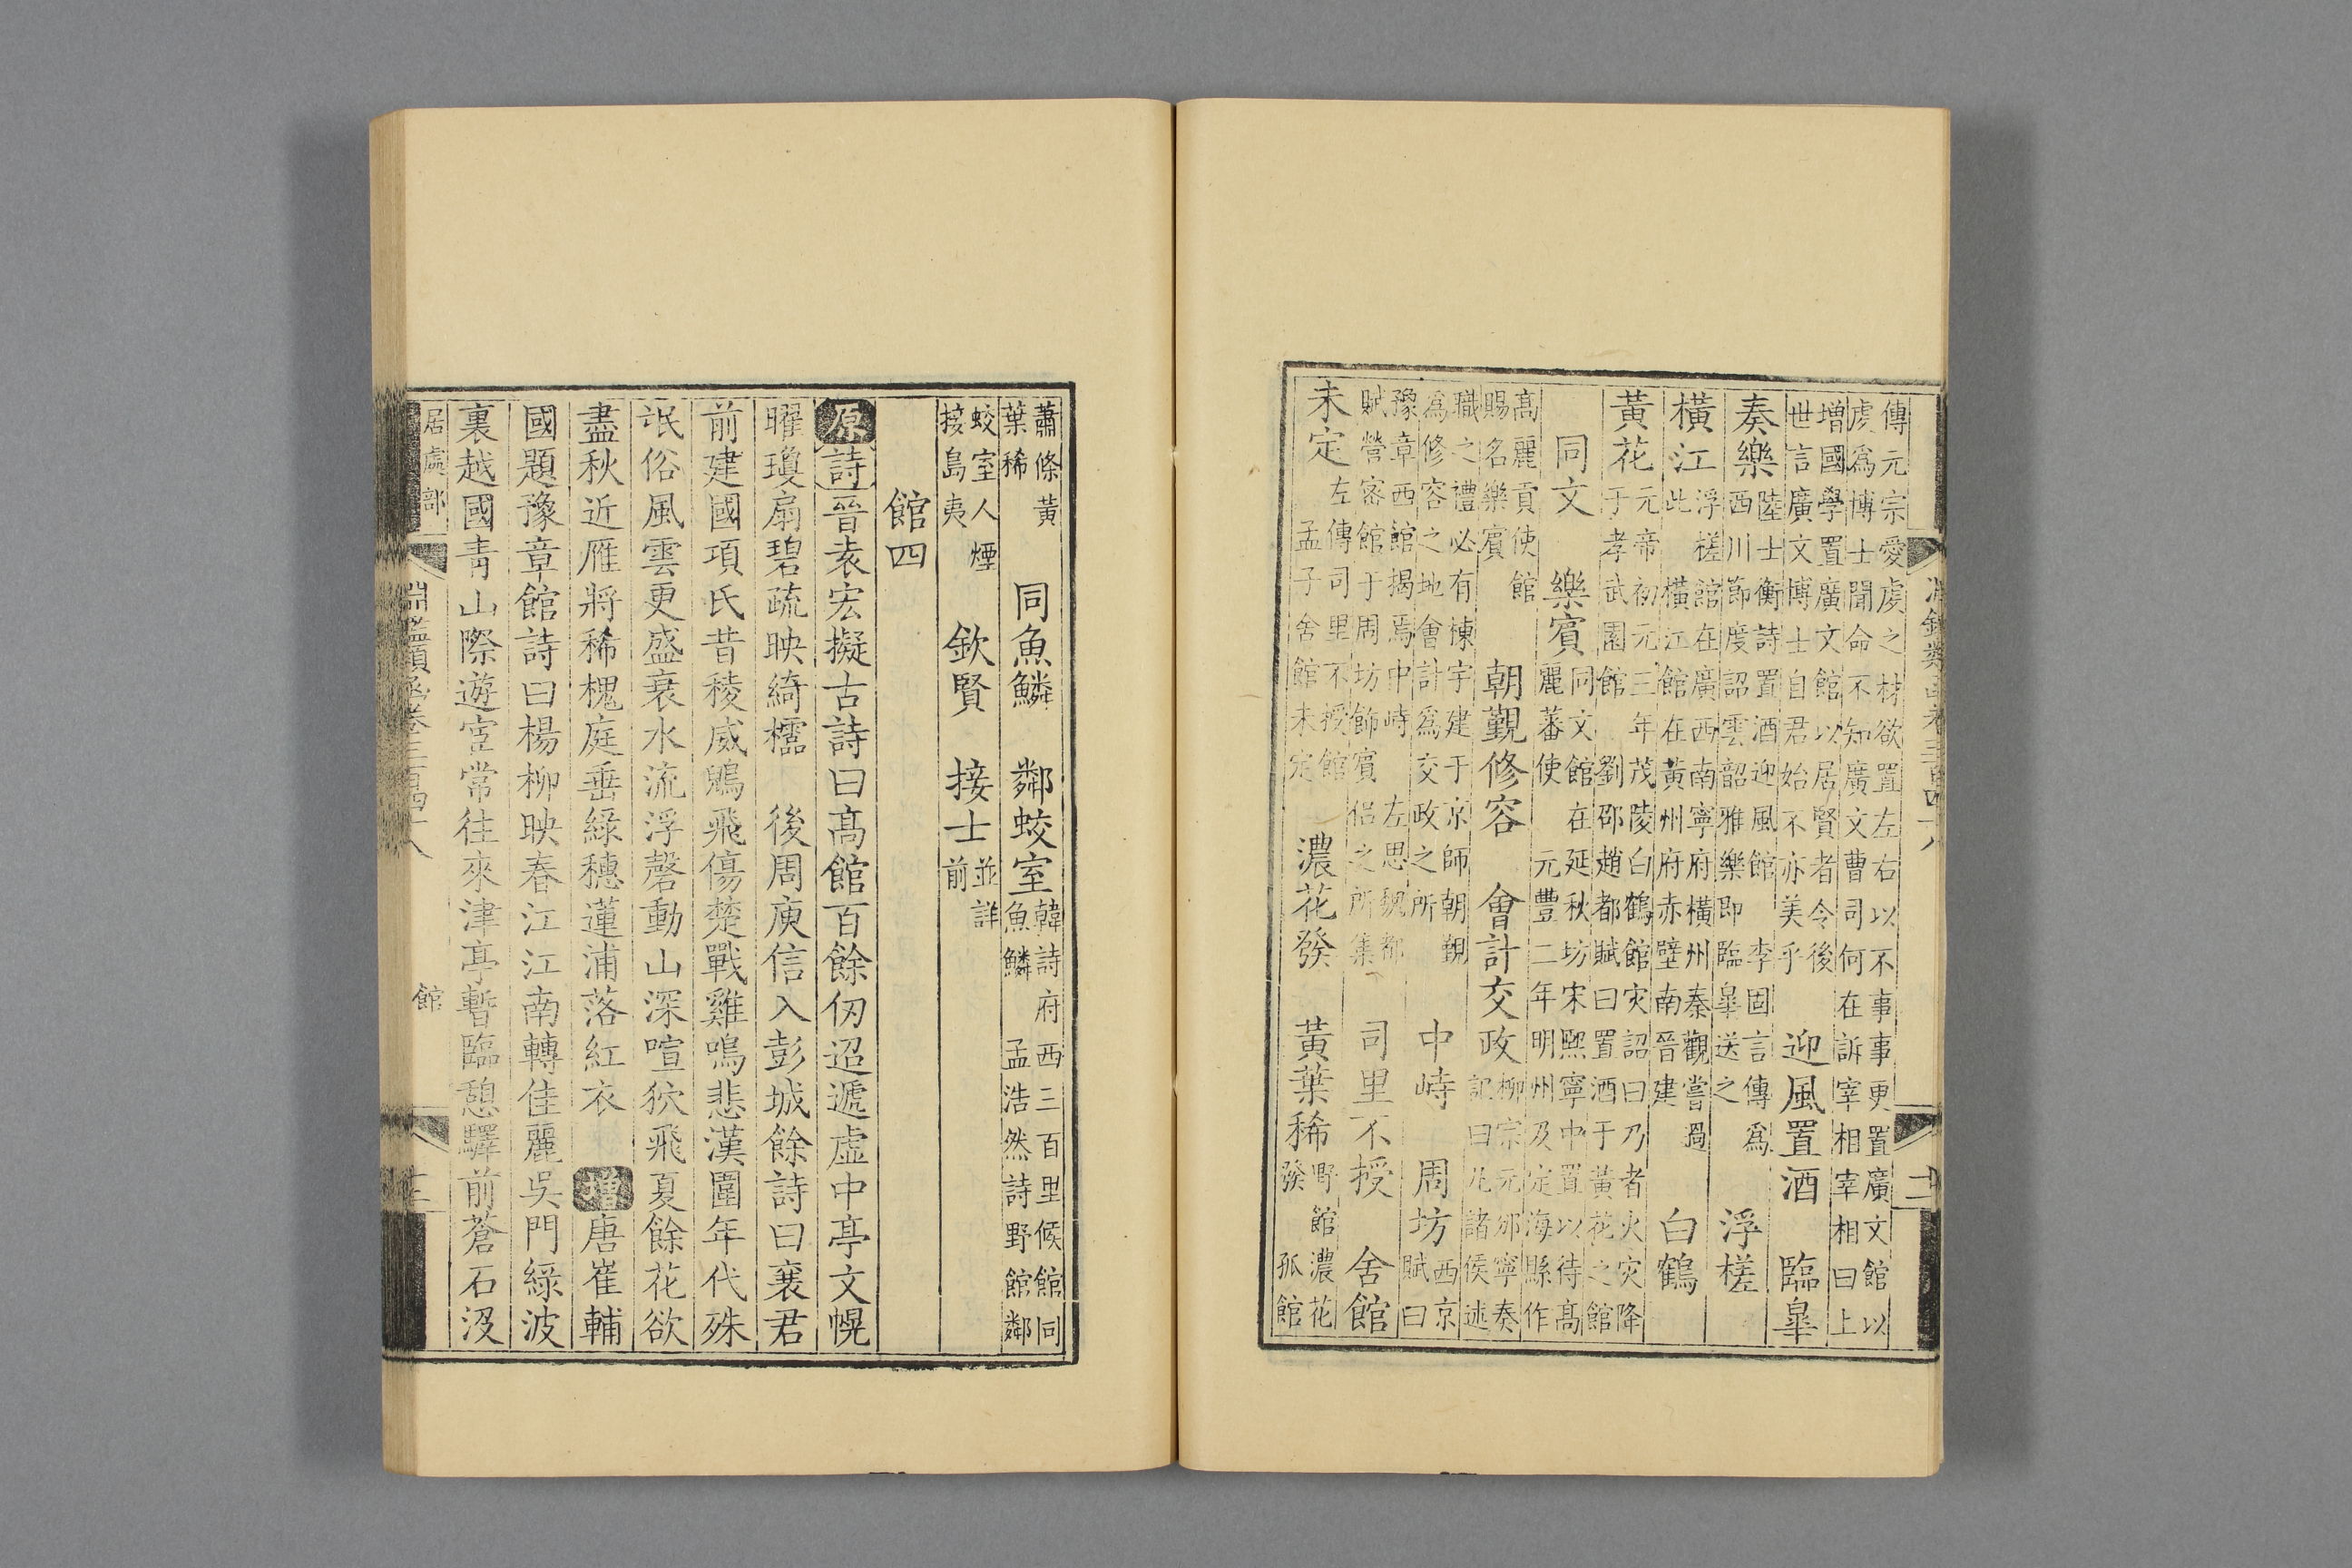 淵鑑類函卷三百四十八
十二
傳元宗愛虔之材欲置左右以不事事更置廣文館以
虔爲博士聞命不知廣文曹司何在訴宰相宰相曰上
增國學置廣文館以居賢者令後
世言廣文博士自君始不亦美乎
迎風置酒 臨臯
奏樂
陸士衡詩置酒迎風館 李固言傳爲
西川節度詔雲韶雅樂即臨臯送之
浮槎
橫江
浮槎館在廣西南寧府橫州秦觀嘗過
此橫江館在黃州府赤壁南晉建
白鶴
黃花
元帝初元三年茂陵白鶴館灾詔曰乃者火灾降
于孝武園館 劉邵趙都賦曰置酒于黃花之館
同文 樂賓
同文館在延秋坊宋熙寧中置以待高
麗蕃使 元豐二年明州及定海縣作
高麗貢使館
賜名樂賓
朝覲修容 會計交政
柳宗元邠寧奏
記曰凡諸侯述
職之禮必有棟宇建于京師朝覲
爲修容之地會計爲交政之所
中峙 周坊
西京
賦曰
豫章西館揭焉中峙 左思魏都
賦營客館于周坊飾賓侶之所集
司里不授 舍館
未定
左傳司里不授館
孟子舍館未定
濃花發 黃葉稀
野館濃花
發 孤館
蕭條黃
葉稀
同魚鱗 鄰蛟室
韓詩府西三百里候館同
魚鱗 孟浩然詩野館鄰
蛟室人煙
接島夷
欽賢 接士
並詳
前
館四
原詩晉袁宏擬古詩曰高館百餘仞迢遞虛中亭文幌
曜瓊扇碧疏映綺櫺 後周庾信入彭城館詩曰襄君
前建國項氏昔稜威鵾飛傷楚戰雞鳴悲漢圍年代殊
氓俗風雲更盛衰水流浮磬動山深喧狖飛夏餘花欲
盡秋近雁將稀槐庭垂綠穗蓮浦落紅衣 增唐崔輔
國題豫章館詩曰楊柳映春江江南轉佳麗吳門綠波
裏越國青山際遊宦常往來津亭暫臨憩驛前蒼石沒
居處部
淵鑑類函卷三百四十八
館
十三